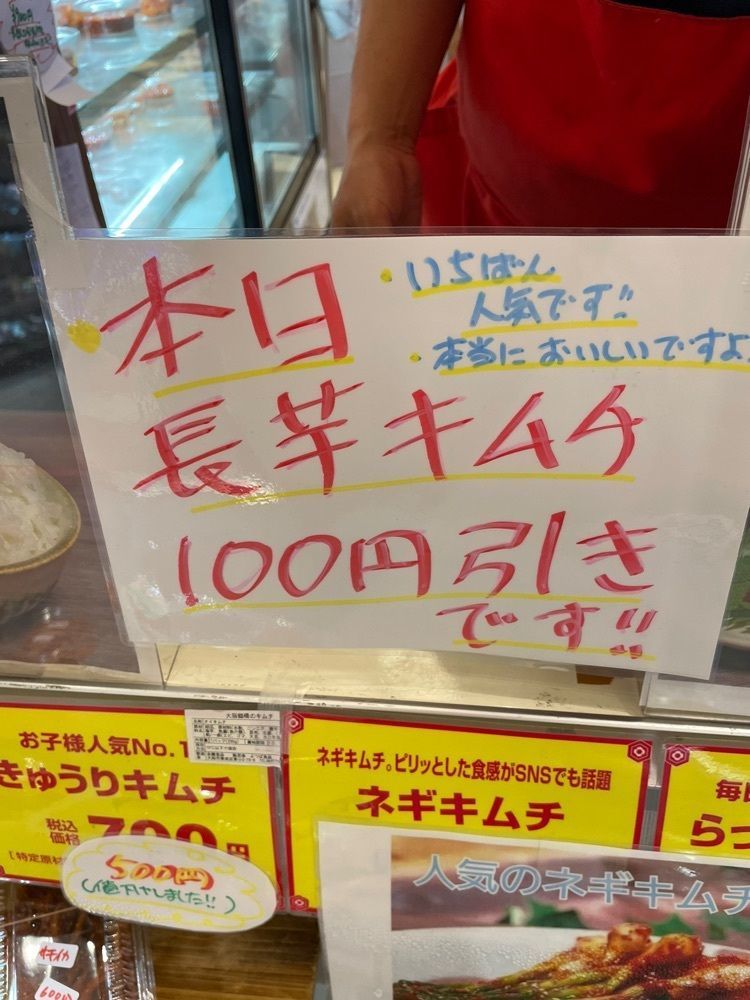 本日
・いちばん
人気です!!
・本当においしいですよ
長芋キムチ
100円引き
です!!
お子様人気No.1
きゅうりキムチ
税込
価格
円
500円
(値下げしました!!)
大阪鶴橋のキムチ
ネギキムチ。ピリッとした食感がSNSでも話題
ネギキムチ
毎日
らっ
人気のネギキムチ
キモイカ
600円